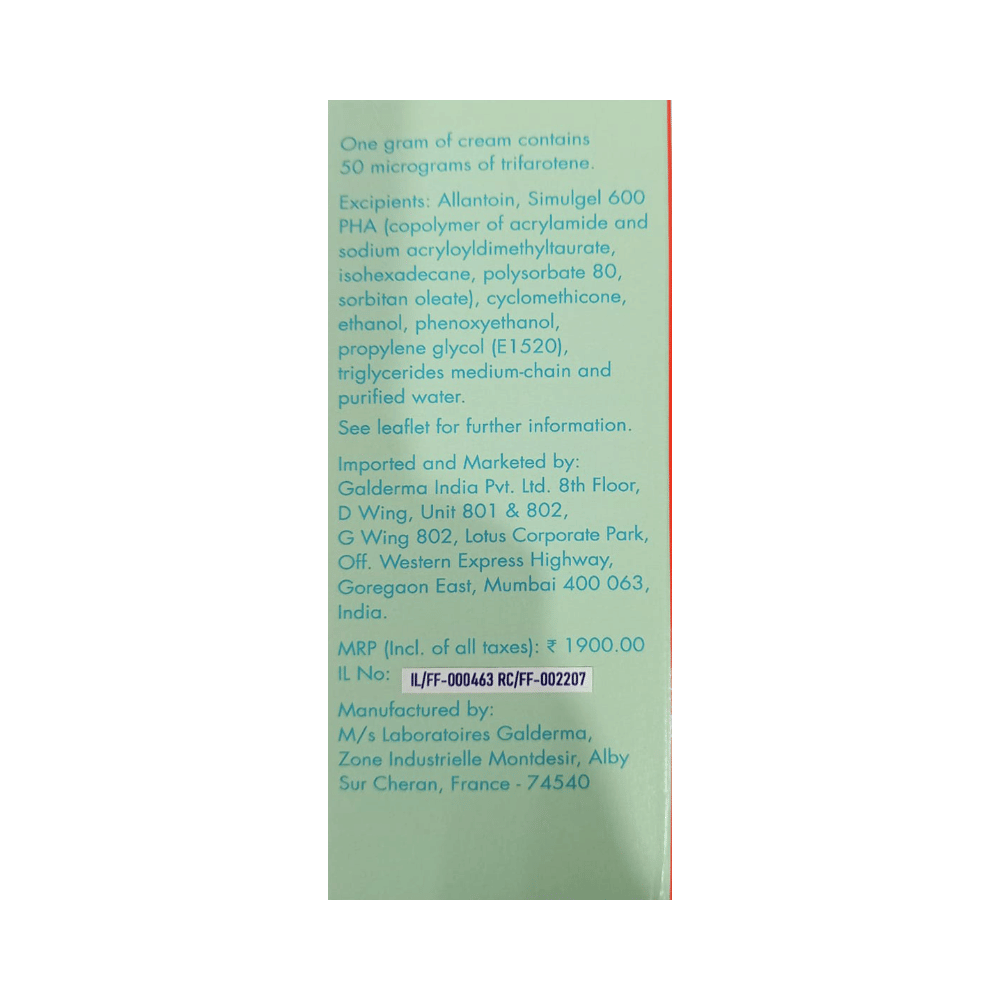 One gram of cream contains
50 micrograms of trifarotene.
Excipients: Allantoin, Simulgel 600
PHA (copolymer of acrylamide and
sodium acryloyldimethyltaurate,
isohexadecane, polysorbate 80,
sorbitan oleate), cyclomethicone,
ethanol, phenoxyethanol,
propylene glycol (E1520),
triglycerides medium-chain and
purified water.
See leaflet for further information.
Imported and Marketed by:
Galderma India Pvt. Ltd. 8th Floor,
D Wing, Unit 801 & 802,
G Wing 802, Lotus Corporate Park,
Off. Western Express Highway,
Goregaon East, Mumbai 400 063,
India.
MRP (Incl. of all taxes): ₹ 1900.00
IL No: IL/FF-000463 RC/FF-002207
Manufactured by:
M/s Laboratoires Galderma,
Zone Industrielle Montdesir, Alby
Sur Cheran, France - 74540